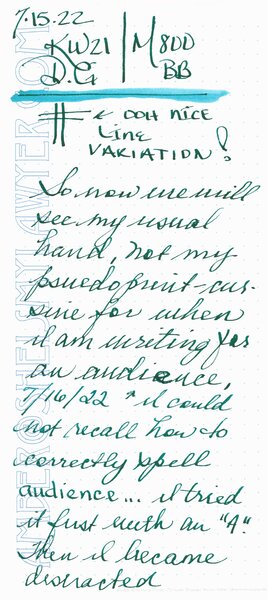 7.15.22
KW21 | M800
D.G | BB
# & ooh nice
line
variation!
So now we will
see my usual
hand, not my
psuedoprint-cur-
sive for when
i am writing for
an audience,
7/16/22 * i could
not recall how to
correctly spell
audience... i tried
it first with an "A".
Then i became
distracted